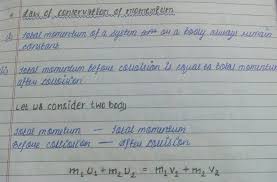 * Law of conservation of momentum
i) total momentum of a system or on a body always remain
constant
ii) total momentum before coalision is equal to total momentum
after collision
Let us consider two body
total momentum — total momentum
Before collission — after collision
m₁ u₁ + m₂ u₂ = m₁ v₁ + m₂ v₂